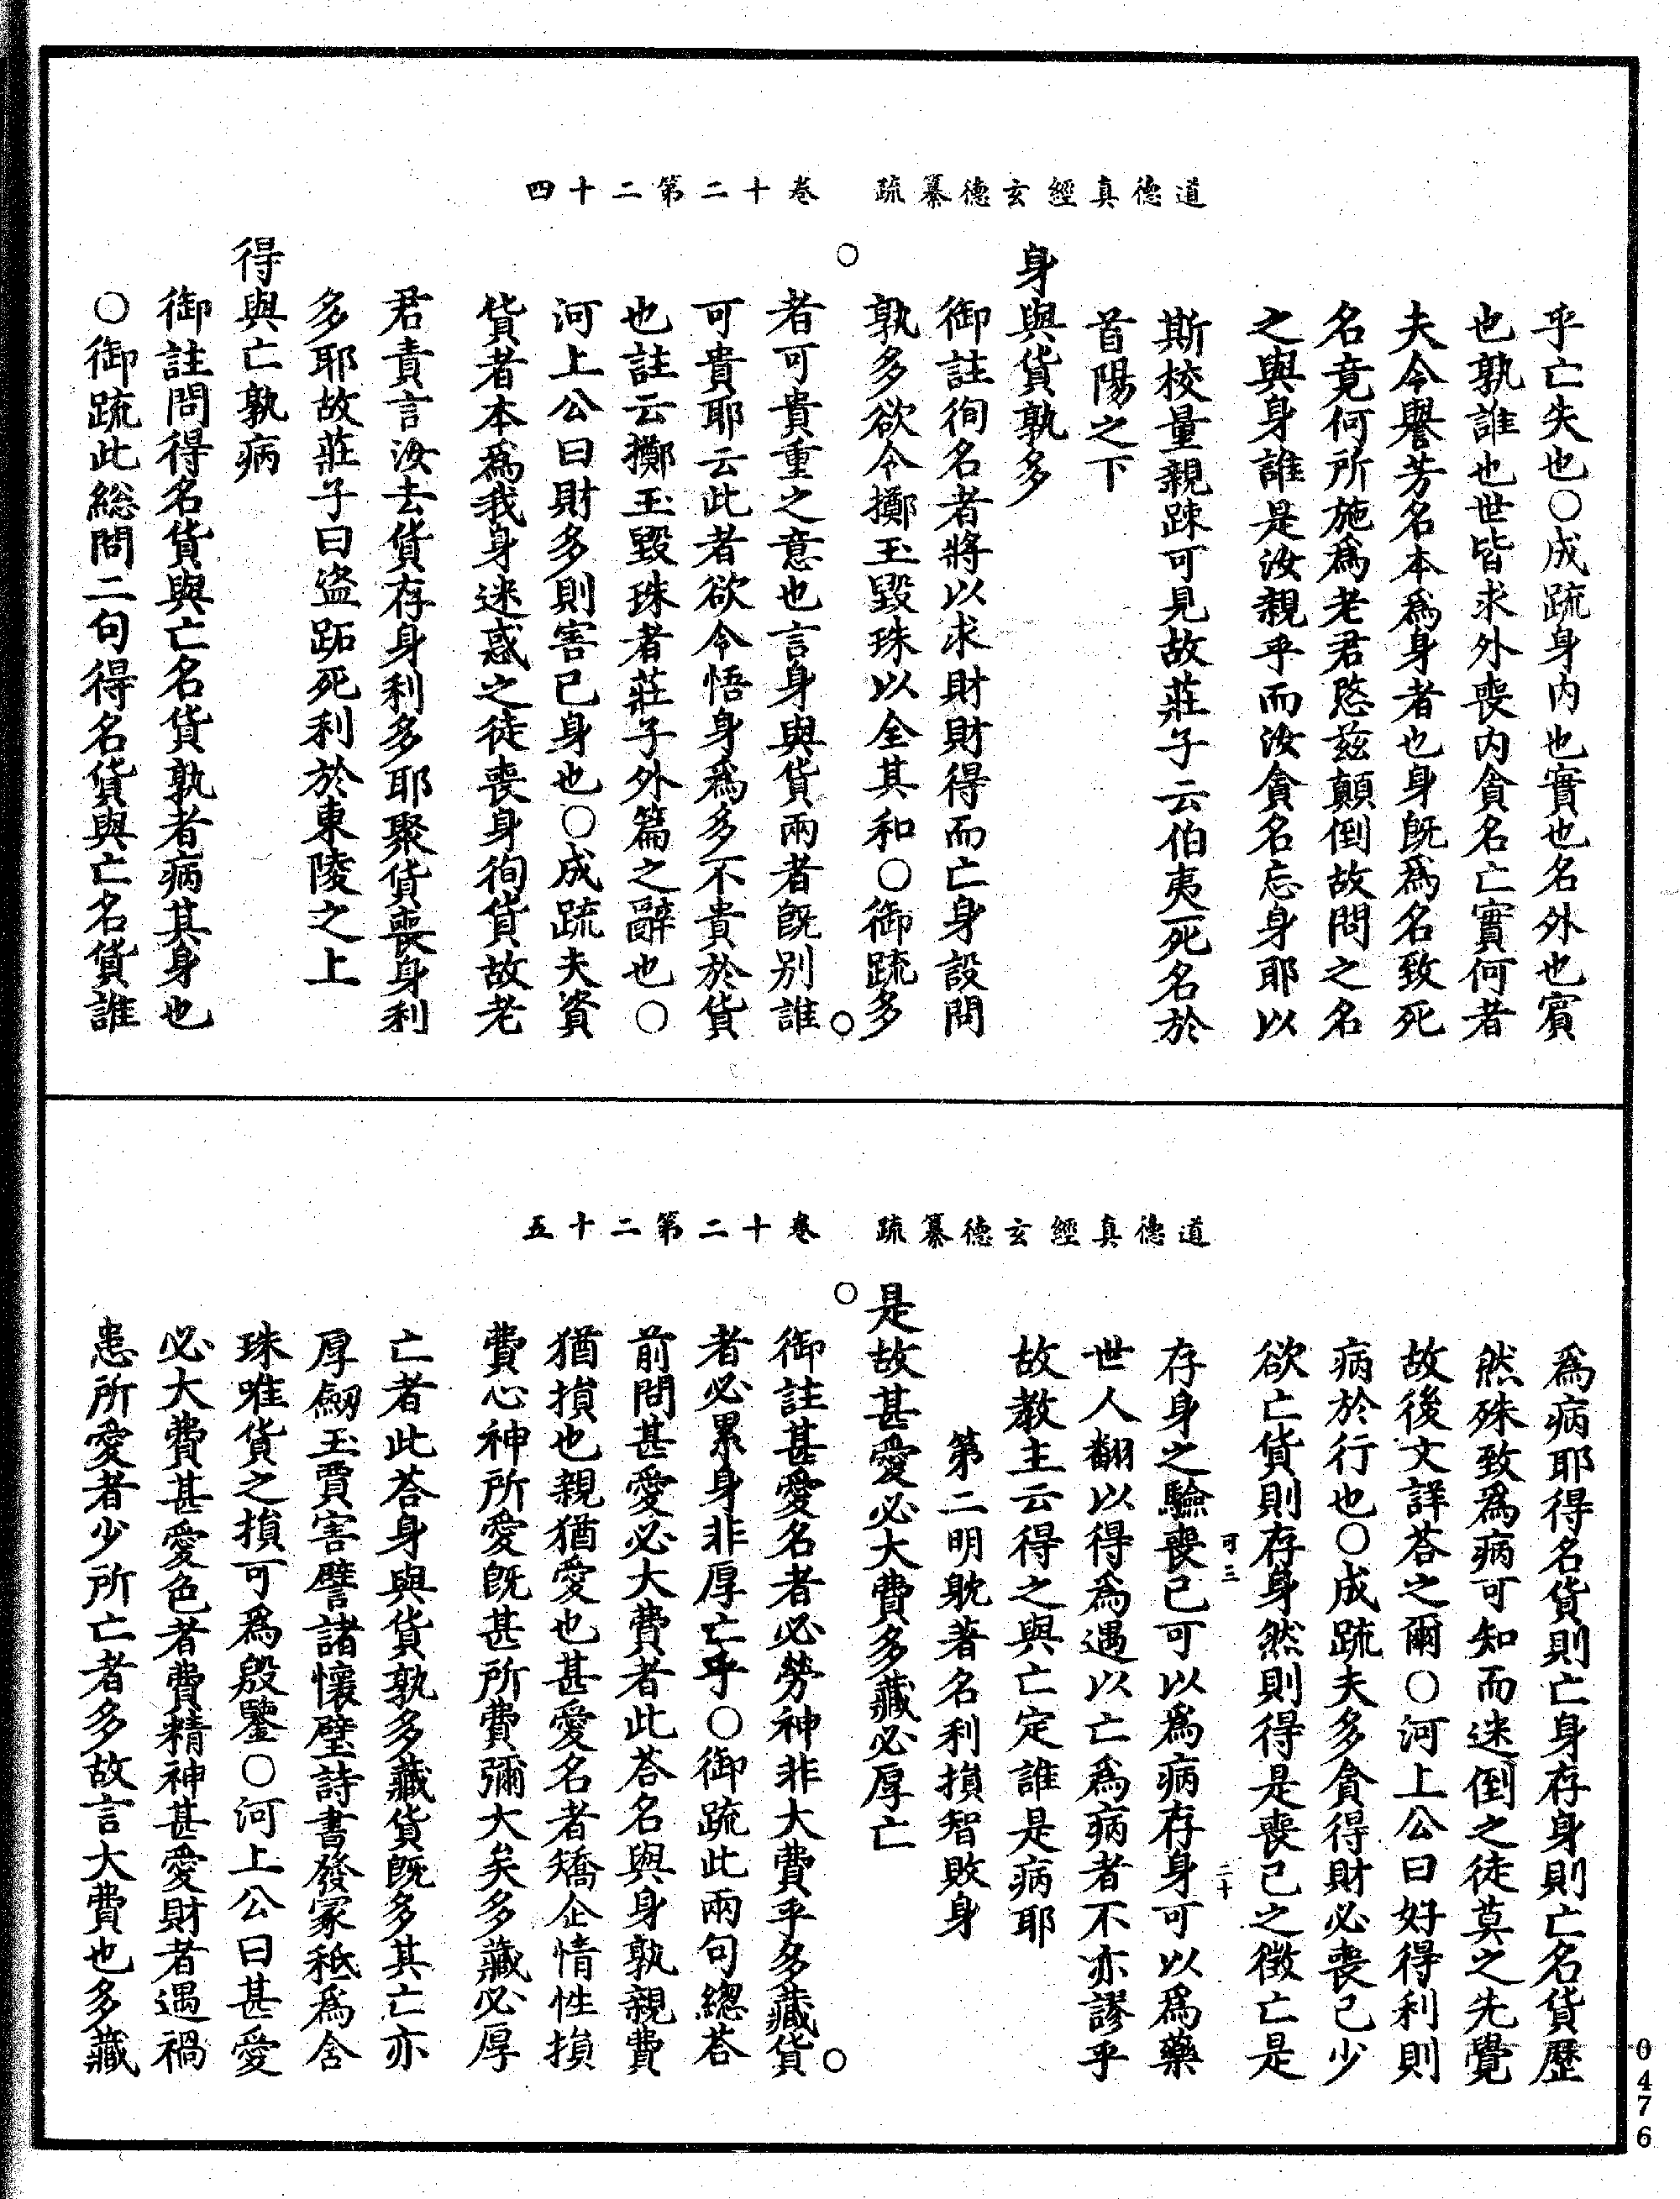 道德真經玄德纂疏　卷十二第二十四
乎亡失也○成疏身内也實也名外也賓
也孰誰也世皆求外喪内貪名亡實何者
夫令譽芳名本爲身者也身旣爲名致死
名竟何所施爲老君愍兹顛倒故問之名
之與身誰是汝親乎而汝貪名忘身耶以
斯校量親踈可見故莊子云伯夷死名於
首陽之下
身與貨孰多
御註徇名者將以求財財得而亡身設問
孰多欲令擲玉毀珠以全其和○御疏多
者可貴重之意也言身與貨兩者旣别誰
可貴耶云此者欲令悟身爲多不貴於貨
也註云擲玉毀珠者莊子外篇之辭也○
河上公曰財多則害已身也○成疏夫資
貨者本爲我身迷惑之徒喪身徇貨故老
君責言汝去貨存身利多耶聚貨喪身利
多耶故莊子曰盗跖死利於東陵之上
得與亡孰病
御註問得名貨與亡名貨孰者病其身也
○御疏此総問二句得名貨與亡名貨誰
道德真經玄德纂疏　卷十二第二十五
爲病耶得名貨則亡身存身則亡名貨歷
然殊致爲病可知而迷倒之徒莫之先覺
故後文詳荅之爾○河上公曰好得利則
病於行也○成疏夫多貪得財必喪己少
欲亡貨則存身然則得是喪己之徵亡是
可三　二十
存身之驗喪己可以爲病存身可以爲藥
世人翻以得爲遇以亡爲病者不亦謬乎
故教主云得之與亡定誰是病耶
第二明躭著名利損智敗身
是故甚愛必大費多藏必厚亡
御註甚愛名者必勞神非大費乎多藏貨
者必累身非厚亡乎○御疏此兩句緫荅
前問甚愛必大費者此荅名與身孰親費
猶損也親猶愛也甚愛名者矯企情性損
費心神所愛旣甚所費彌大矣多藏必厚
亡者此荅身與貨孰多藏貨旣多其亡亦
厚劒玉賈害譬諸懷璧詩書發冢秪爲含
珠唯貨之損可爲殷鑒○河上公曰甚愛
必大費甚愛色者費精神甚愛財者遇禍
患所愛者少所亡者多故言大費也多藏
0476